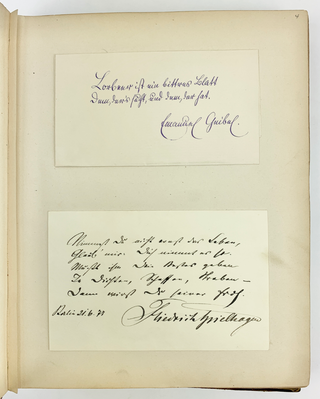 Lorbeer ist ein bittres Blatt
Dem, der's sucht, und dem, der hat.
Emanuel Geibel.
Nimmst Du nicht ernst das Leben,
Glaub' mir: Dich nimmt es
Mußt ihm Dein Bestes geben
In Dichten, Schaffen, Streben –
Dann wirst Du seiner froh.
Berlin 21.6.73
Friedrich Spielhagen